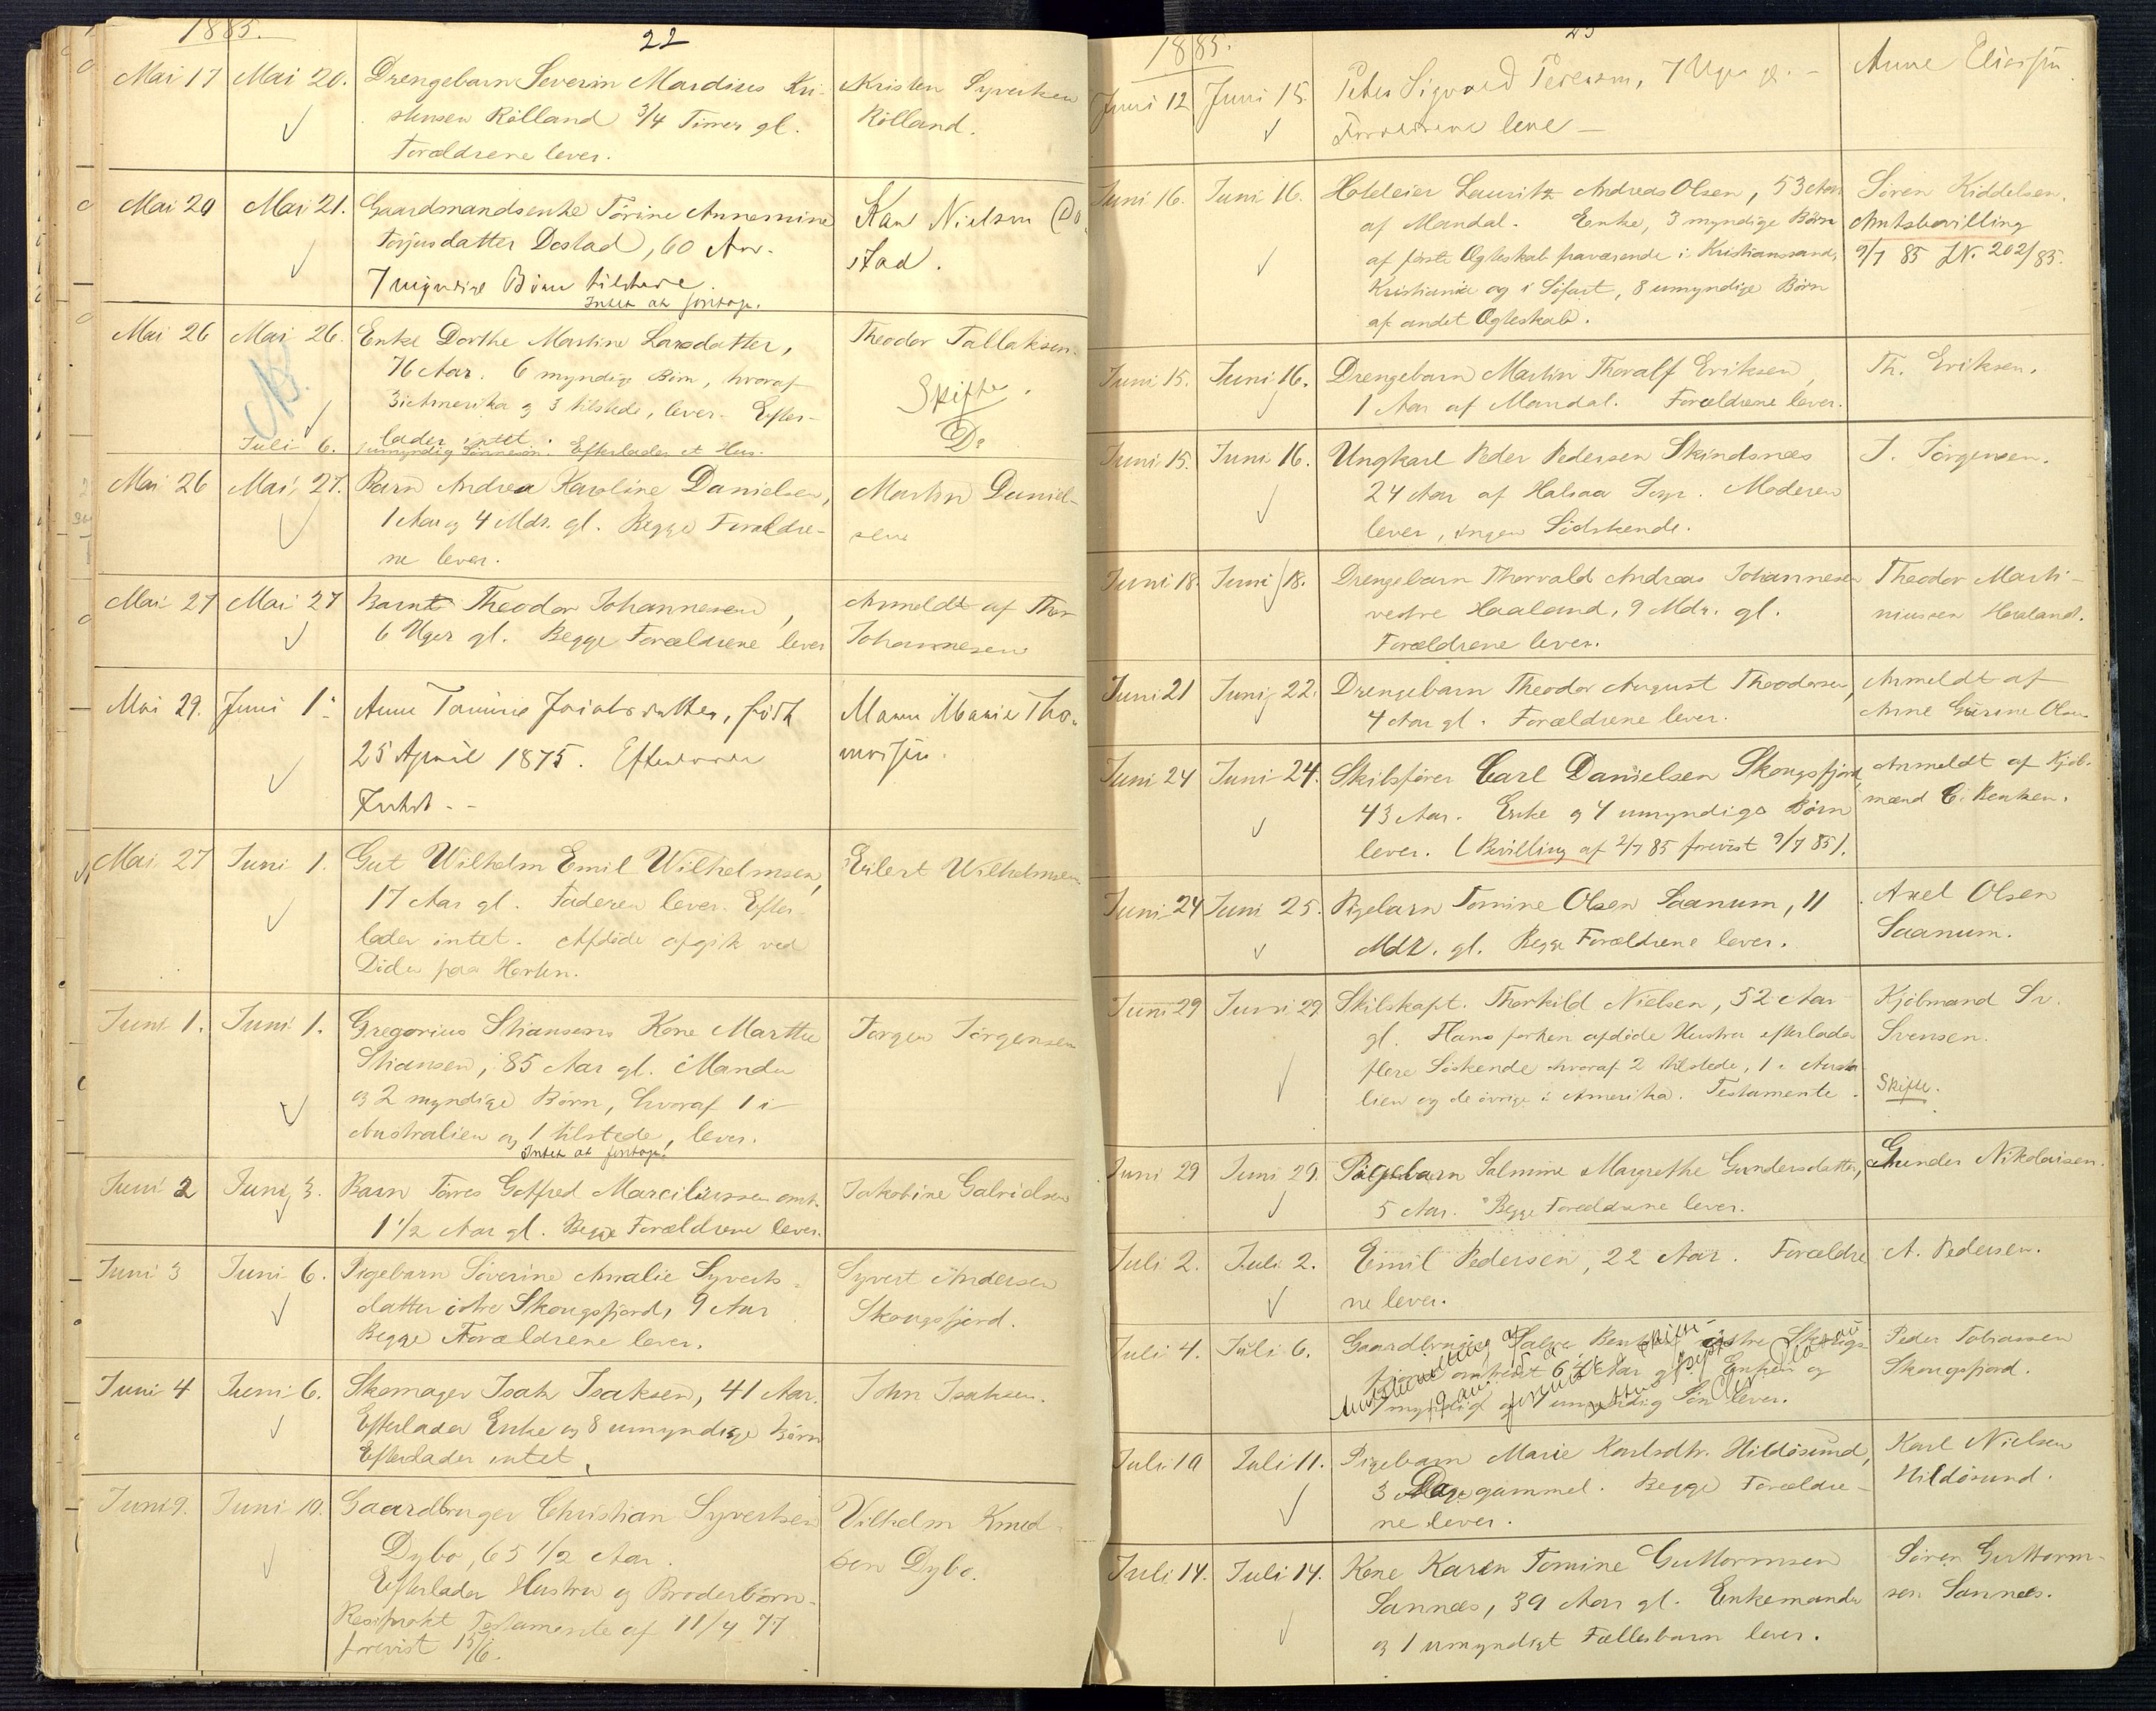 1885.
22
Mai 17 Mai 20. Drengebarn Severin Mardius Kri- Kristen Syvertsen
stensen Rölland 3/4 Timer gl. Rölland.
Forældrene lever.
Mai 20 Mai 21. Gaardmandsenke Törine Annemine Karl Nielsen Do
Torjusdatter Dostad, 60 Aar. stad.
7 myndige Börn tilstede.
Intet at foretage.
Mai 26 Mai 26. Enke Dorthe Martine Larsdatter, Theodor Tallaksen.
76 Aar. 6 myndige Börn, hvoraf Skifte.
3 i Amerika og 3 tilstede, lever. Efter-
NB.
lader intet.
Juli 6. umyndig Sönnesön. Efterlader et Hus. Do
Mai 26 Mai 27. Barn Andrea Karoline Danielsen, Martin Daniel-
1 Aar og 4 Mdr. gl. Begge Forældre- sen
ne lever.
Mai 27 Mai 27 Barnt Theodor Johannesen, Anmeldt af Thor
6 Uger gl. Begge Forældrene lever Johannesen
Mai 29. Juni 1. Anne Tomine Jacobsdatter, född Maren Marie Tho-
25 April 1875. Efterlader massen.
Intet --
Mai 27 Juni 1. Gut Wilhelm Emil Wilhelmsen, Eilert Wilhelmsen
17 Aar gl. Faderen lever. Efter-
lader intet. Afdöde afgik ved
Döden paa Horten.
Juni 1. Juni 1. Gregorius Stiansens Kone Marthe Jörgen Jörgensen
Stiansen, 85 Aar gl. Manden
og 2 myndige Börn, hvoraf 1 i
Australien og 1 tilstede, lever.
Intet at foretage.
Juni 2 Juni 3. Barn Töres Gotfred Marciliussen omt. Jakobine Gabrielsen
1 1/2 Aar gl. Begge Forældrene lever.
Juni 3 Juni 6. Pigebarn Söverine Amalie Syverts- Syvert Andersen
datter östre Skougsfjord, 9 Aar Skougsfjord.
Begge Forældrene lever.
Juni 4 Juni 6. Skomager Isak Isaksen, 41 Aar. John Isaksen.
Efterlader Enke og 8 umyndige Börn
Efterlader intet.
Juni 9. Juni 10. Gaardbruger Christian Syvertsen Vilhelm Knud-
Dybo, 65 1/2 Aar. sen Dybo.
Efterlader Hustru og Broderbörn.
Resiprokt Testamente af 11/4 77
forevist 15/6.
1885.
23
Juni 12 Juni 15. Peter Sigvard Petersen, 7 Uger gl. – Anne Eliassen
Forældrene leve –
Juni 16. Juni 16. Hoteleier Lauritz Andreas Olsen, 53 Aar Sören Kiddelsen.
af Mandal. Enke, 3 myndige Börn Amtsbevilling
af förste Ægteskab fraværende i Kristianssand, 9/7 85 JN. 202/85.
Kristiania og i Söfart, 8 umyndige Börn
af andet Ægteskab.
Juni 15. Juni 16. Drengebarn Martin Thoralf Eriksen, Th. Eriksen.
1 Aar af Mandal. Forældrene lever.
Juni 15. Juni 16. Ungkarl Peder Pedersen Skindsnæs J. Jörgensen.
24 Aar af Halsaa Sogn. Moderen
lever, ingen Södskende.
Juni 18. Juni 18. Drengebarn Thorvald Andreas Johannesen Theodor Marti-
vestre Haaland, 9 Mdr. gl. niussen Haaland.
Forældrene lever.
Juni 21 Juni 22. Drengebarn Theodor August Theodorsen, Anmeldt af
4 Aar gl. Forældrene lever. Anne Gurine Olsen
Juni 24 Juni 24. Skibsförer Carl Danielsen Skougsfjord, Anmeldt af Kjöb-
43 Aar. Enke og 4 umyndige Börn mand C. Bentsen.
lever. (Bevilling af 2/7 85 forevist 9/7 85).
Juni 24 Juni 25. Pigebarn Tomine Olsen Saanum, 11 Axel Olsen
Mdr. gl. Begge Forældrene lever. Saanum.
Juni 29 Juni 29 Skibskapt. Thorkild Nielsen, 52 Aar Kjöbmand Sv.
gl. Hans forhen afdöde Hustru efterlader Svensen.
flere Söskende hvoraf 2 tilstede, 1 i Austra-
lien og de övrige i Amerika. Testamente. Skifte.
Juni 29 Juni 29. Pigebarn Salmine Margrethe Gundersdatter, Gunder Nikolaisen.
5 Aar. Begge Forældrene lever.
Juli 2. Juli 2. Emil Pedersen, 22 Aar. Forældre A. Pedersen.
ne lever.
Juli 4. Juli 6. Gaardbruger Salve östre Skougs- Peder Tobiassen
fjord omtrent Aar gl. Enken og Skougsfjord.
1 myndig og 1 umyndig Sön lever.
Juli 10 Juli 11. Pigebarn Marie Karlsdtr. Hildösund, Karl Nielsen
3 Dage gammel. Begge Forældre- Hildösund.
ne lever.
Juli 14. Juli 14. Kone Karen Tomine Guttormsen Sören Guttorm-
Sannæs, 39 Aar gl. Enkemanden sen Sannæs.
og 1 umyndigt Fællesbarn lever.